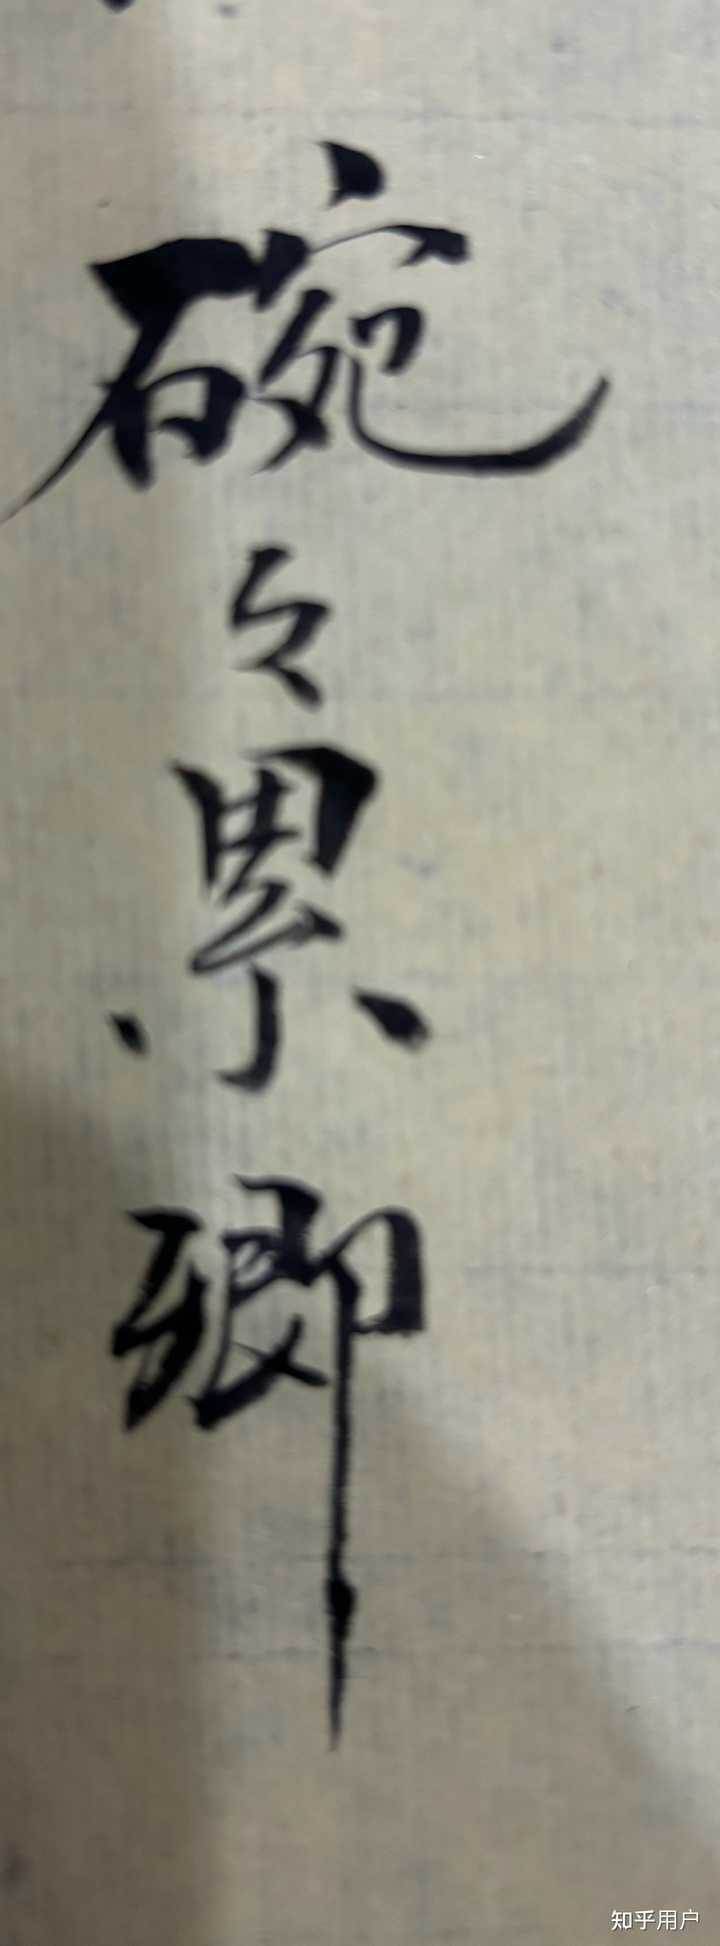 碗々累卿
知乎用户